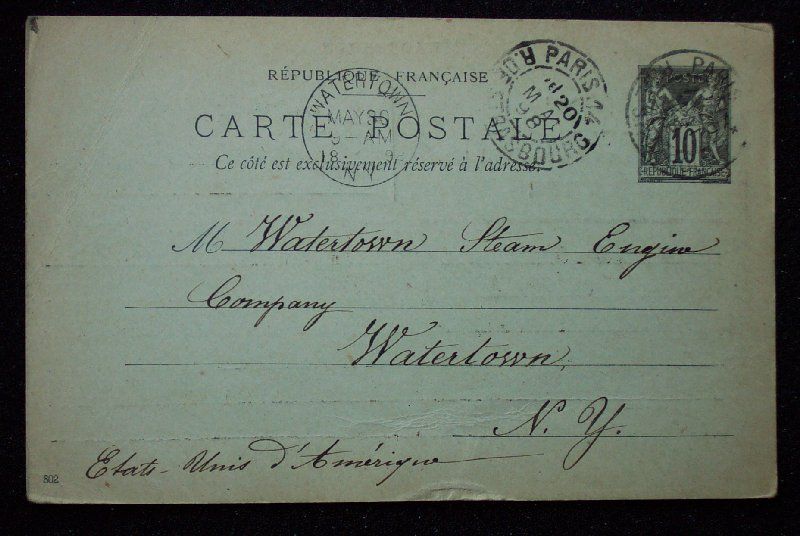 RÉPUBLIQUE FRANÇAISE
CARTE POSTALE
Ce côté est exclusivement réservé à l'adresse.
WATERTOWN
MAY 30
AM
N.Y.
PARIS
20
POSTE
10
RÉPUBLIQUE FRANÇAISE
M Watertown Steam Engine
Company
Watertown,
N. Y.
Etats-Unis d'Amérique
802